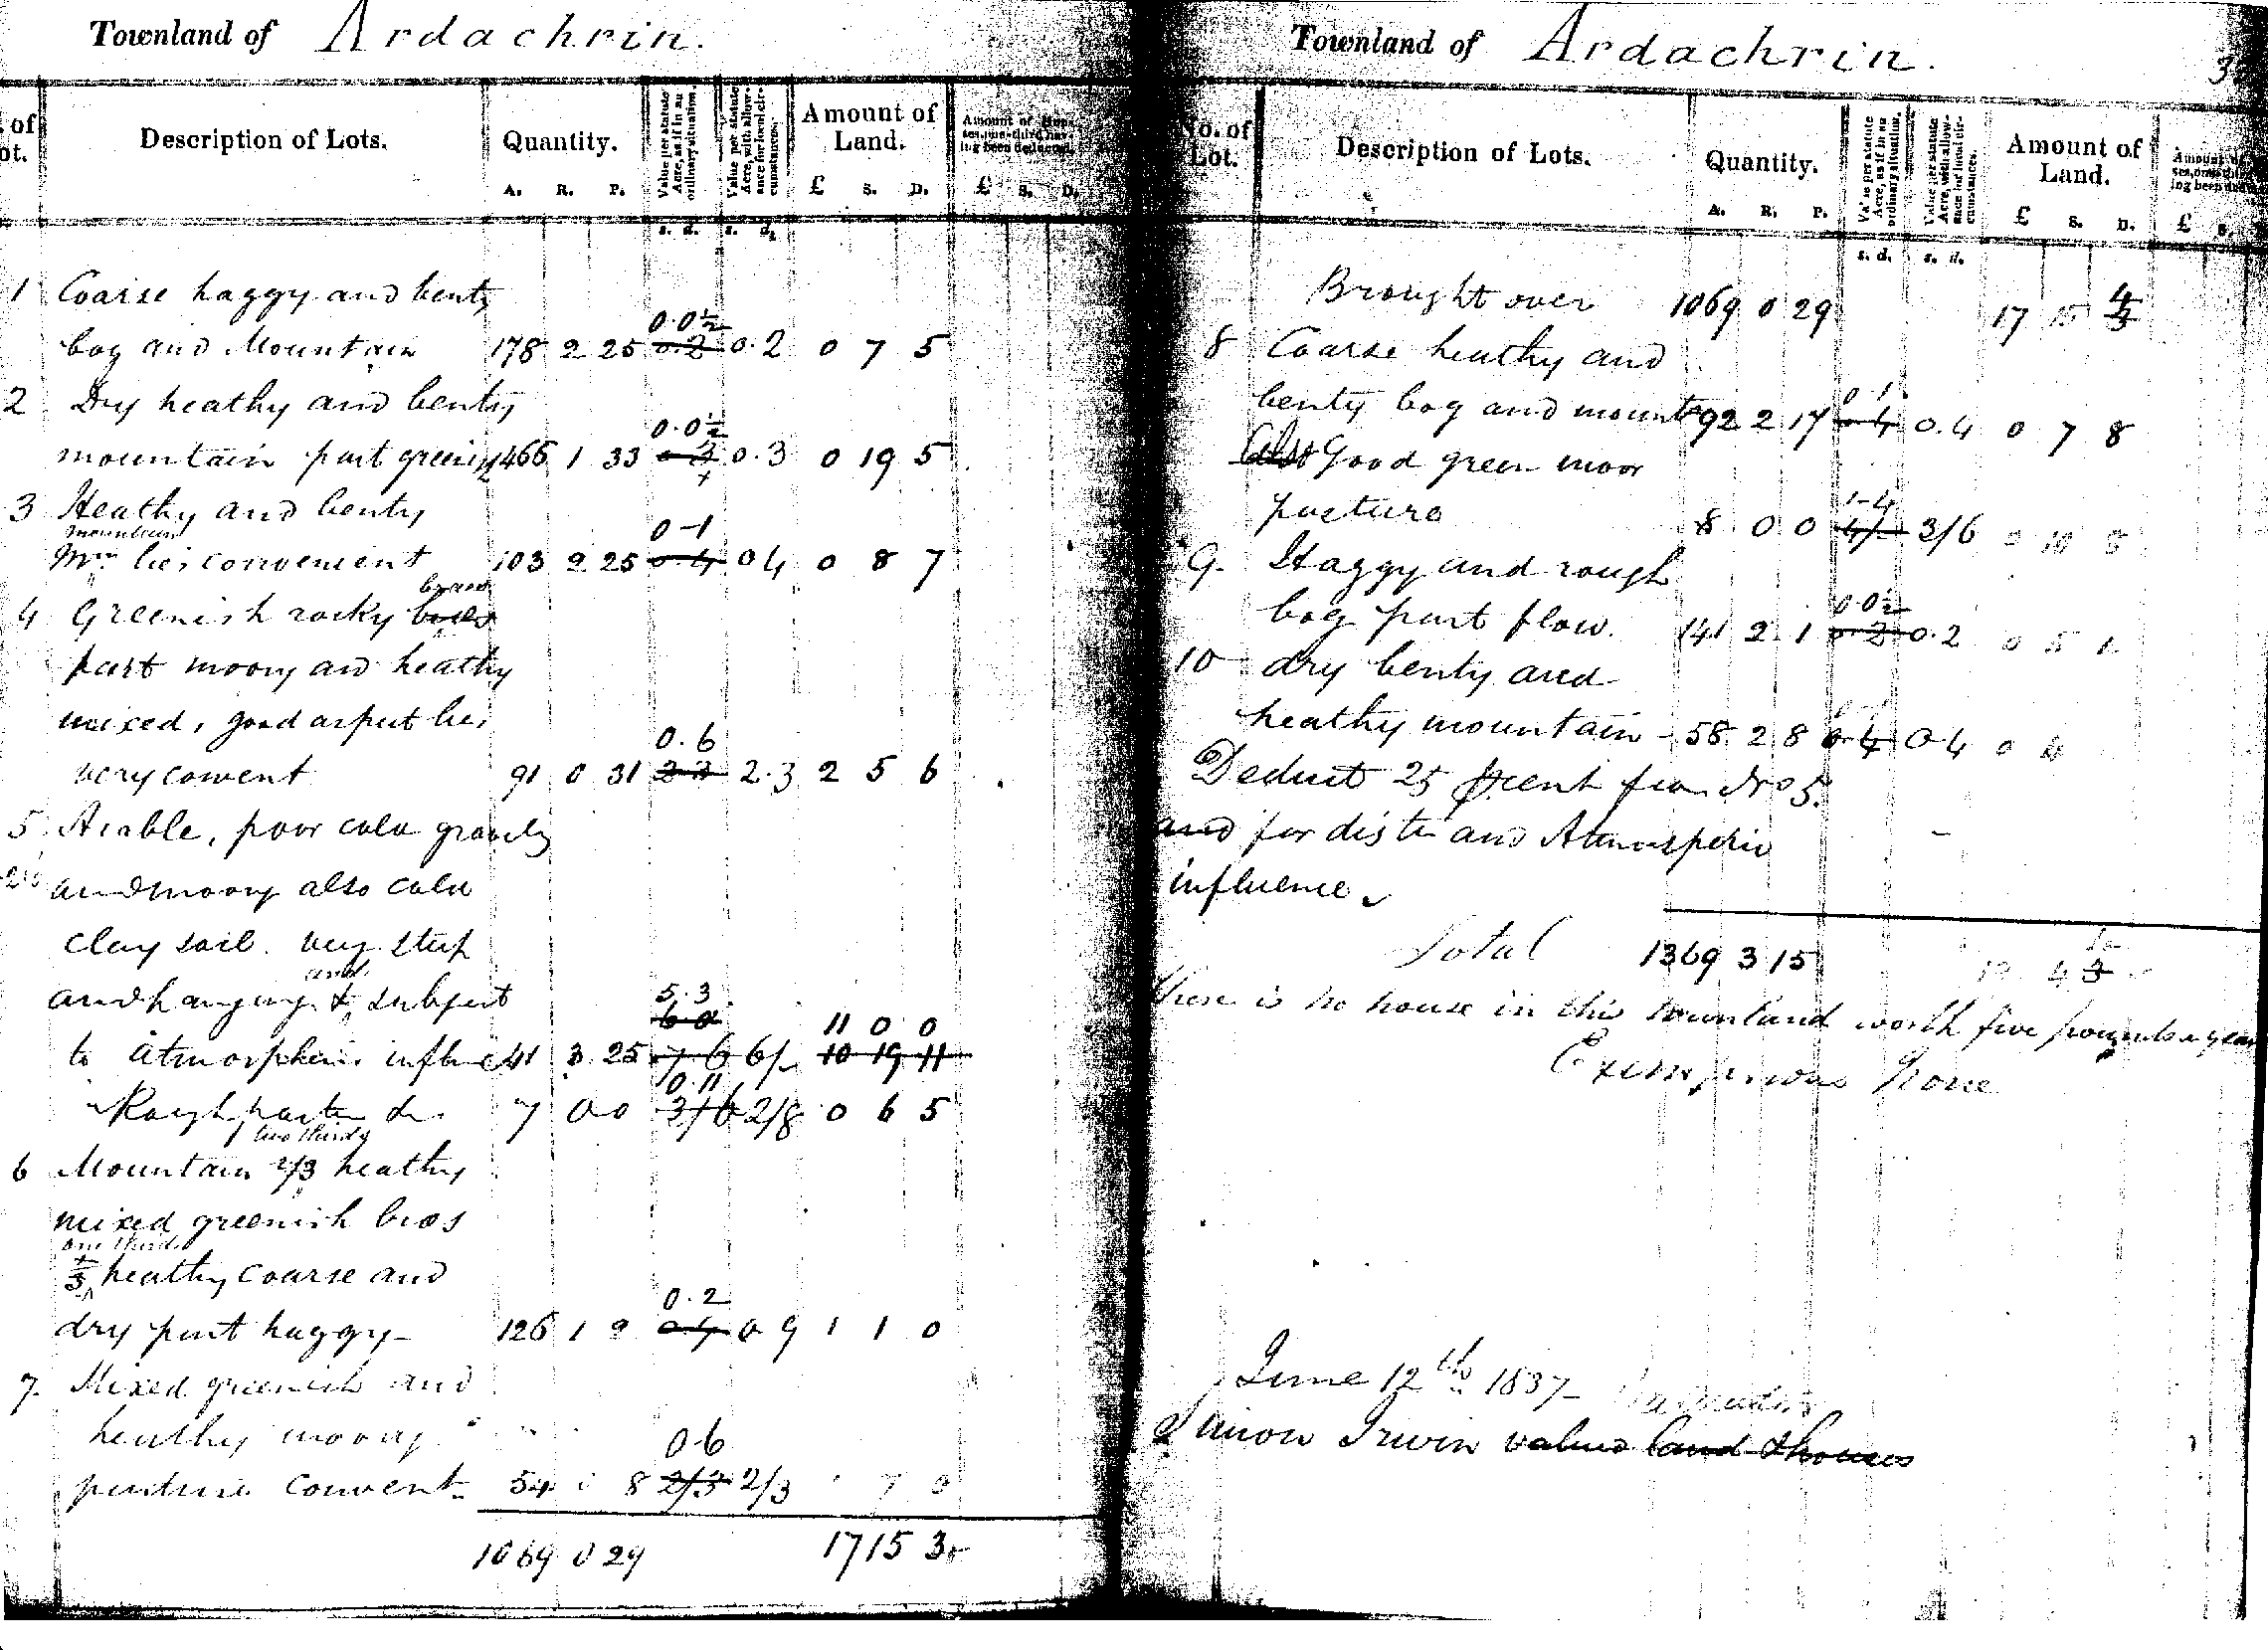 Townland of Ardachrin.
of
ot.
Description of Lots.
Quantity.
A. R. P.
Value per statute Acre, as if in an ordinary situation.
Value per statute Acre, with allowance for local circumstances.
Amount of Land.
£ s. D.
Amount of Houses, one-third having been deducted.
£ s. D.
s. d. s. d.
1 Coarse haggy and benty
0.0½
bog and Mountain 178 2 25 0.2 0.2 0 7 5
2 Dry heathy and benty
0.0½
mountain part greenish 466 1 33 0.3 0.3 0 19 5
3 Heathy and benty
mountain 0-1
Mn lies convenient 103 2 25 0.4 04 0 8 7
4 Greenish rocky
part moory and heathy
mixed, good aspect lies
0.6
very convent 91 0 31 2.3 2.3 2 5 6
5 Arable, poor cold gravely
and moory also cold
clay soil. very steep
and
and hanging & subject 5.3
6.0 11 0 0
to atmospheric influe 41 3 25 7 6 6/- 10 19 11
0.11
Rough pasture do. 7 0 0 3/6 2/8 0 6 5
two thirds
6 Mountain 2/3 heathy
mixed greenish bros
one third
1/3 heathy coarse and
0.2
dry part haggy 126 1 2 0.9 0 9 1 1 0
7. Mixed greenish and
heathy moory
06
pasture convent. 54 8 2/3 2/3 7
1069 0 29 17 15 3
Townland of Ardachrin.
No. of Lot.
Description of Lots.
Quantity.
A. R. P.
Value per statute Acre, as if in an ordinary situation.
Value per statute Acre, with allowance for local circumstances.
Amount of Land.
£ s. D.
£ s.
s. d. s. d.
Brought over 1069 0 29 17 15 4
8 Coarse heathy and
0 1
benty bog and mountn 92 2 17 0 4 0.4 0 7 8
Also Good green moor
1-4
pasture 8 0 0 4/- 3/6 0 10 8
9. Haggy and rough
0.0½
bog part flow. 141 2 1 0.2 0.2 0 5 1
10 dry benty and
heathy mountain 58 2 8 0 4 0 4 0 4
Deduct 25 pr cent from No 5.
and for diste and Atmospheric
influence
Total 1369 3 15
There is no house in this townland worth five pounds a year
Exemptions None
June 12th 1837
Simon Irwin valued land & houses